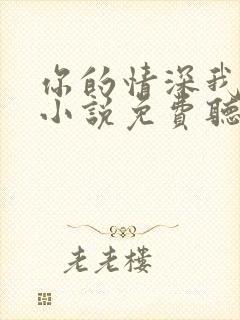 你的情深我
小說免費聽
老老樓